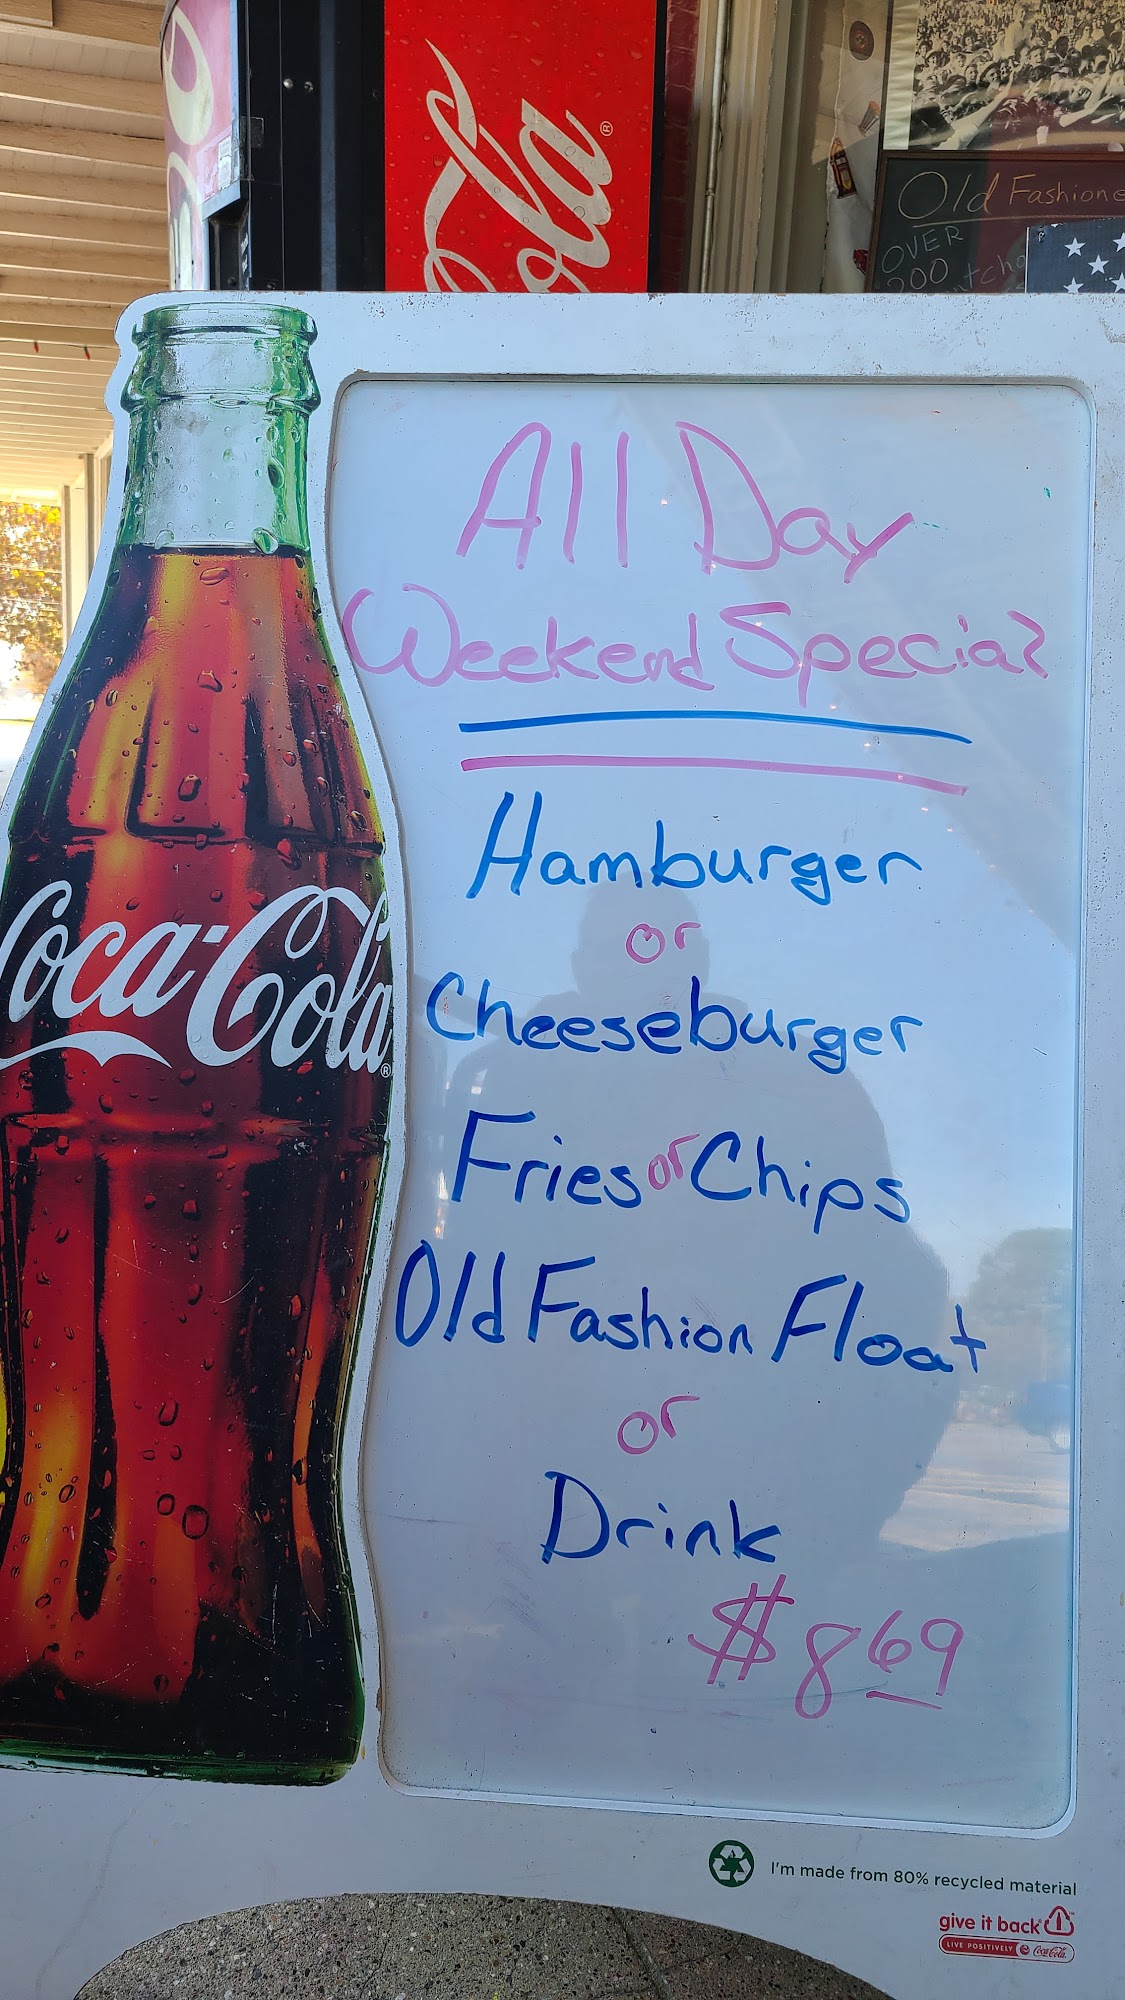 Cola®
Old Fashione
OVER
200
All Day
Weekend Special
Hamburger
or
Cheeseburger
Fries or Chips
Old Fashion Float
or
Drink
$8.69
Coca-Cola®
I'm made from 80% recycled material
give it back
LIVE POSITIVELY Coca-Cola